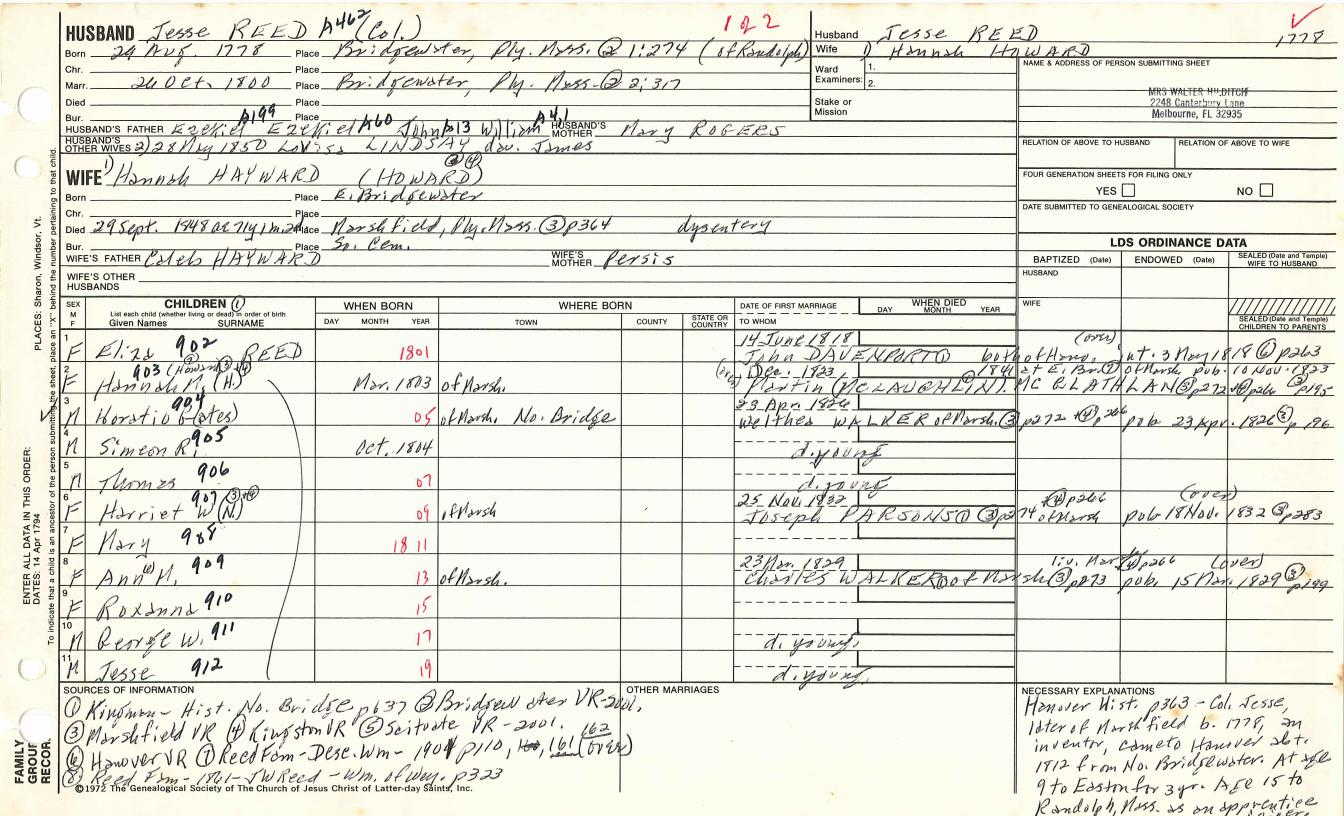 HUSBAND Jesse REED A462 (Col.)
1 of 2
Born 29 Aug. 1778 Place Bridgewater, Ply. Mass. ② 1:274 (of Randolph)
Chr. Place
Marr. 26 Oct. 1800 Place Bridgewater, Ply. Mass. ② 2:317
Died Place
Bur. Place
HUSBAND'S FATHER Ezekiel A199 Ezekiel A60 John A13 William A4,1 HUSBAND'S MOTHER Mary ROGERS
HUSBAND'S OTHER WIVES 2) 28 May 1850 Lovisa LINDSAY dau. James
Husband Jesse REED
1778
Wife 1) Hannah HOWARD
Ward Examiners: 1.
2.
Stake or Mission
NAME & ADDRESS OF PERSON SUBMITTING SHEET
MRS WALTER HILDITCH
2248 Canterbury Lane
Melbourne, FL 32935
RELATION OF ABOVE TO HUSBAND RELATION OF ABOVE TO WIFE
FOUR GENERATION SHEETS FOR FILING ONLY
YES NO
DATE SUBMITTED TO GENEALOGICAL SOCIETY
WIFE 1) Hannah HAYWARD (HOWARD) ③ ④
Born Place E. Bridgewater
Chr. Place
Died 29 Sept. 1848 ae 71y 1m 2d Place Marshfield, Ply. Mass. ③ p364 dysentery
Bur. Place So. Cem.
WIFE'S FATHER Caleb HAYWARD WIFE'S MOTHER Persis
WIFE'S OTHER HUSBANDS
LDS ORDINANCE DATA
BAPTIZED (Date) ENDOWED (Date) SEALED (Date and Temple) WIFE TO HUSBAND
HUSBAND
WIFE
SEALED (Date and Temple) CHILDREN TO PARENTS
SEX M F CHILDREN ① WHEN BORN WHERE BORN DATE OF FIRST MARRIAGE WHEN DIED
List each child (whether living or dead) in order of birth
Given Names SURNAME DAY MONTH YEAR TOWN COUNTY STATE OR COUNTRY TO WHOM DAY MONTH YEAR
1 F Eliza 902 REED 1801 14 June 1818 (over)
John DAVENPORT ① both of Hano. int. 3 May 1818 ⑥ p263
2 F Hannah M. (H.) 903 (Howard ③ ④) Mar. 1803 of Marsh. Dec. 1823, 1841 at E. Br. ② of Marsh pub. 10 Nov. 1823
Martin (MCLAUGHLIN). MC GLATHLAN ③ p272 ④ p266 ③ p195
3 M Horatio G(ates) 904 05 of Marsh. No. Bridge 23 Apr. 1826
Welthea WALKER of Marsh. ③ p272 ④ p266 pub. 23 Apr. 1826 ③ p196
4 M Simeon R. 905 Oct. 1804 d. young
5 M Thomas 906 07 d. young
6 F Harriet W (N.) 907 ③ ④ 09 of Marsh 25 Nov. 1832 ④ p266 (over)
Joseph PARSONS ① ③ p274 of Marsh pub 18 Nov. 1832 ③ p283
7 F Mary 908 1811
8 F Ann M. 909 13 of Marsh. 23 Mar. 1829 liv. Marsh ④ p266 (over)
Charles WALKER ① of Marsh ③ p273 pub. 15 Mar. 1829 ③ p199
9 F Roxanna 910 15
10 M George W. 911 17 d. young.
11 M Jesse 912 19 d. young.
SOURCES OF INFORMATION
① Kingman - Hist. No. Bridge p637 ② Bridgewater VR-2001,
③ Marshfield VR ④ Kingston VR ⑤ Scituate VR - 2001.
⑥ Hanover VR ⑦ Reed Fam - Desc. Wm - 1901 p110, 160, 161, 162 (over)
⑧ Reed Fam - 1861 - JW Reed - Wm. of Wey. p323
OTHER MARRIAGES
NECESSARY EXPLANATIONS
Hanover Hist. p363 - Col. Jesse,
later of Marshfield b. 1778, an
inventor, came to Hanover abt.
1812 from No. Bridgewater. At age
9 to Easton for 3 yr. Age 15 to
Randolph, Mass. as an apprentice
©1972 The Genealogical Society of The Church of Jesus Christ of Latter-day Saints, Inc.
FAMILY GROUP RECOR.
ENTER ALL DATA IN THIS ORDER:
DATES: 14 Apr 1794
PLACES: Sharon, Windsor, Vt.
To indicate that a child is an ancestor of the person submitting the sheet, place an "X" behind the number pertaining to that child.